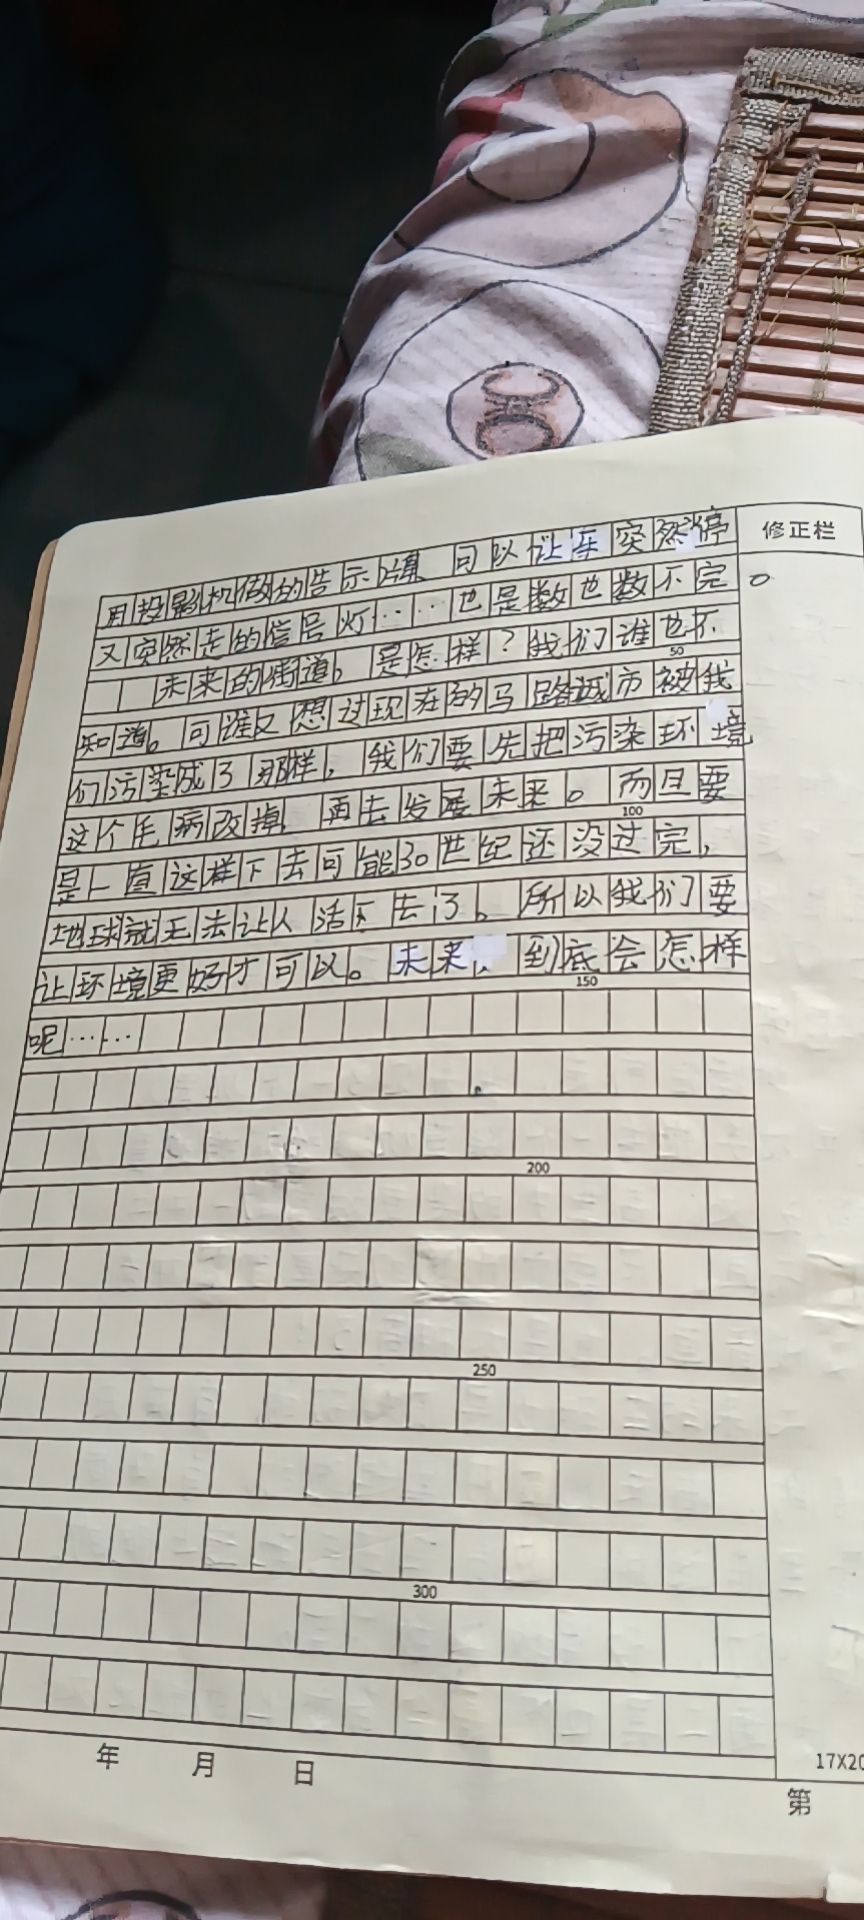 用投影机做的告示牌 可以让车突然停
修正栏
又突然走的信号灯……也是数也数不完。
未来的街道。是怎样？我们谁也不
50
知道。可谁又想过现在的马路城市被我
们污染成了那样，我们要先把污染环境
这个毛病改掉，再去发展未来。而且要
100
是一直这样下去可能30世纪还没过完，
地球就无法让人活下去了。所以我们要
让环境更好才可以。未来，到底会怎样
150
呢……
200
250
300
年 月 日
17X20
第